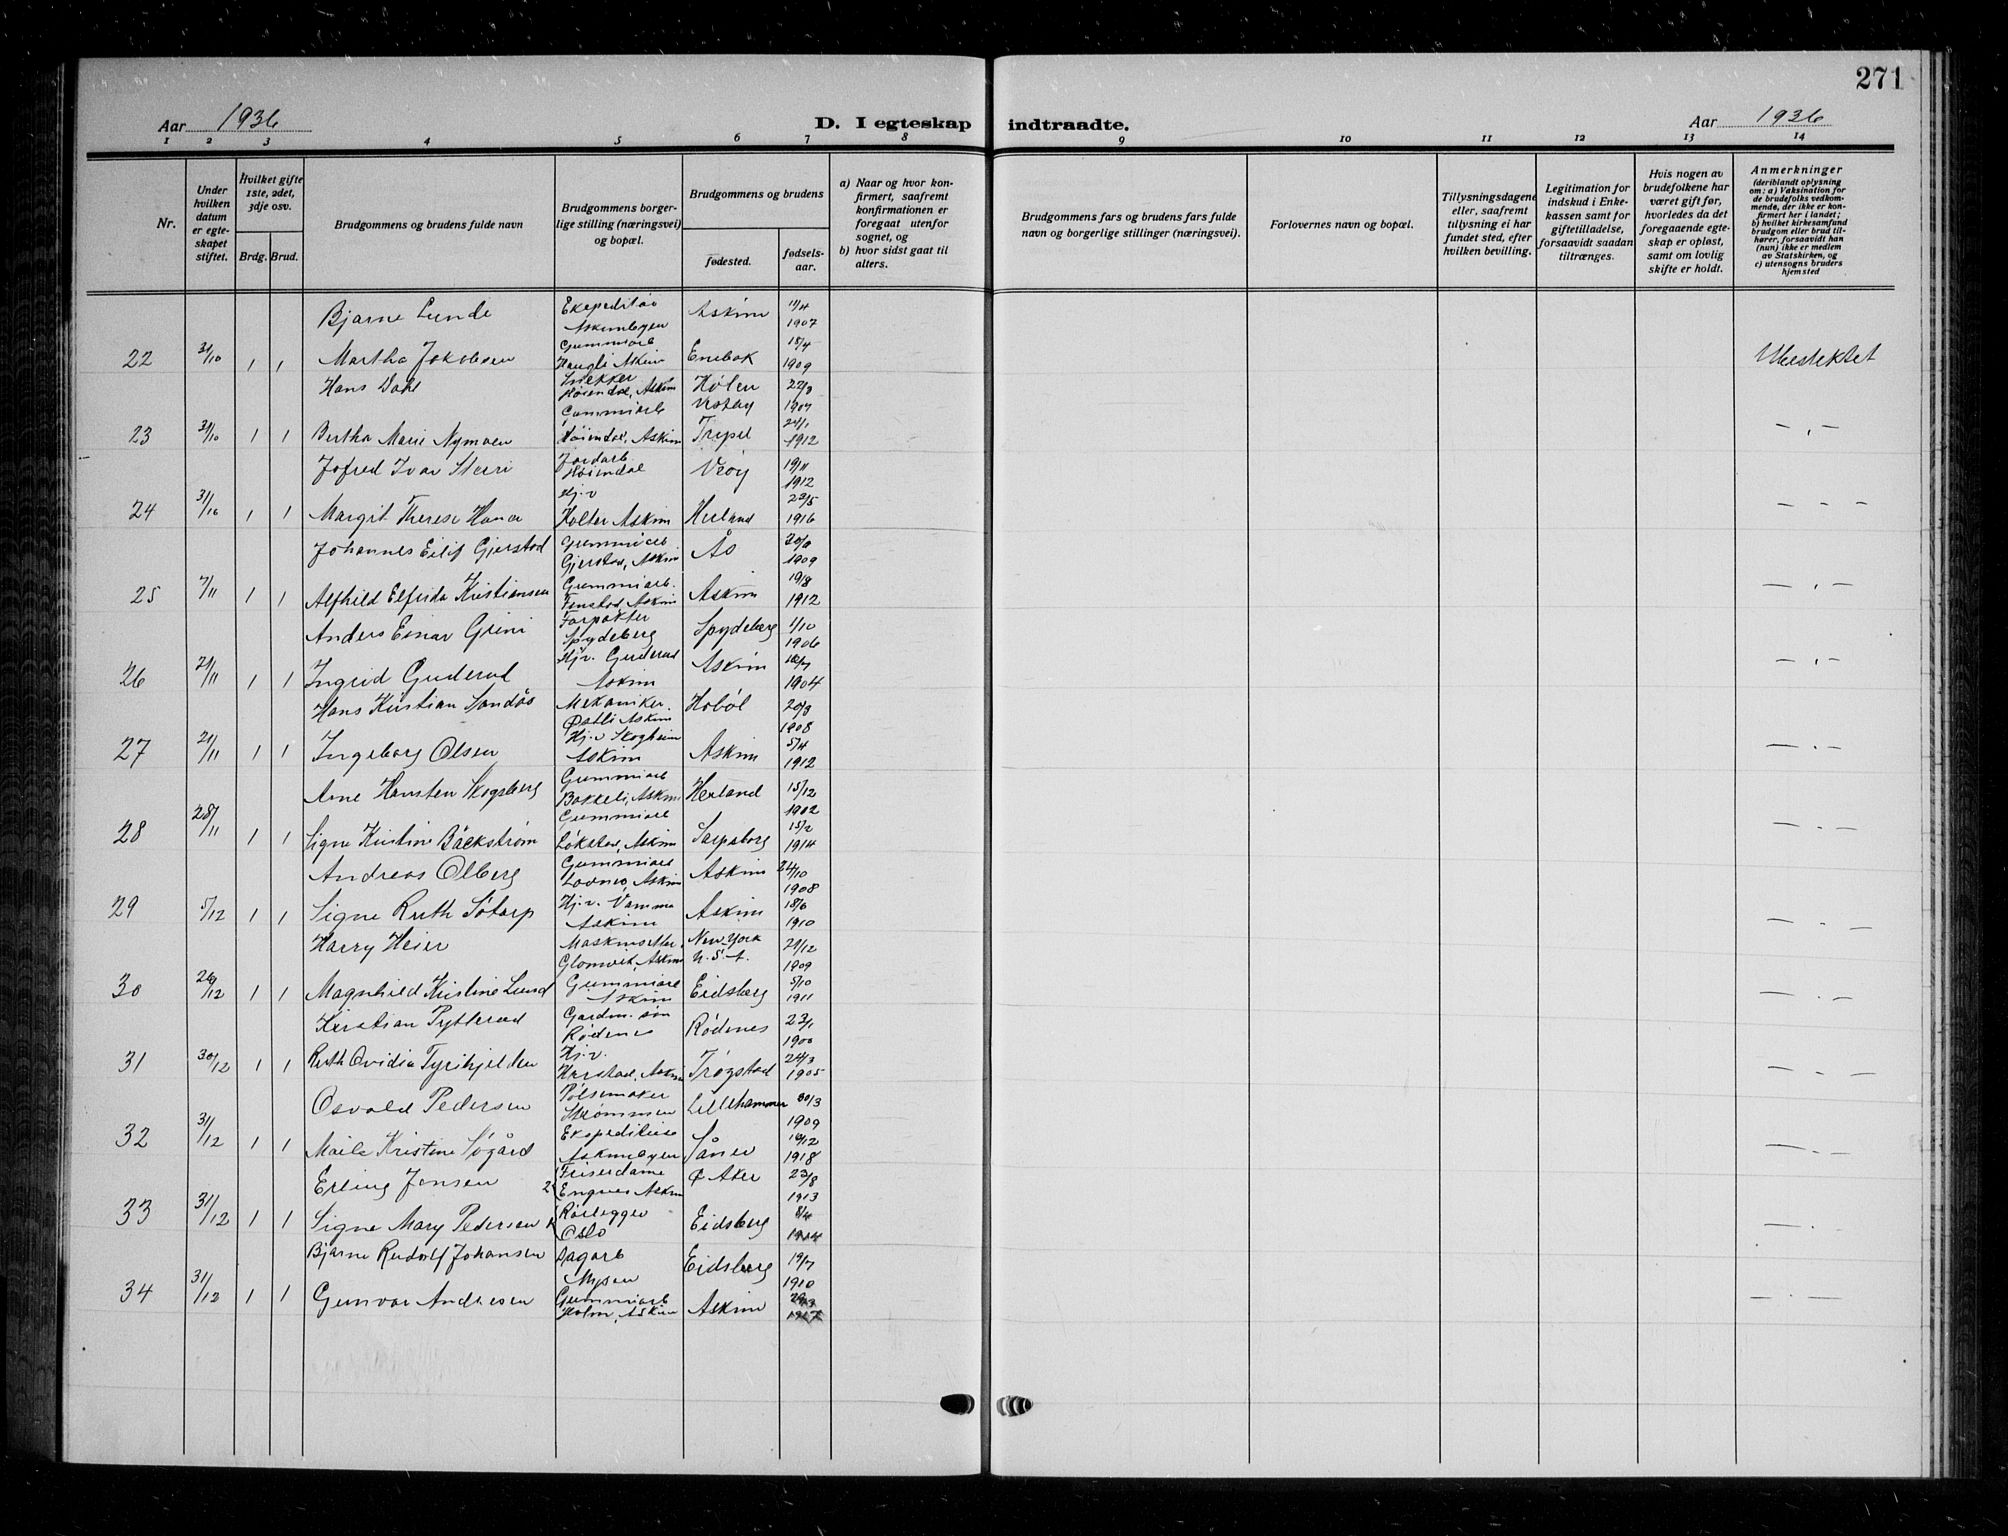 271
Aar 1936
D. I egteskap indtraadte.
Aar 1936
1 2 3 4 5 6 7 8 9 10 11 12 13 14
Nr.
Under
hvilken
datum
er egte-
skapet
stiftet.
Hvilket gifte
1ste, 2det,
3dje osv.
Brdg. Brud.
Brudgommens og brudens fulde navn
Brudgommens borger-
lige stilling (næringsvei)
og bopæl.
Brudgommens og brudens
fødested.
fødsels-
aar.
a) Naar og hvor kon-
firmert, saafremt
konfirmationen er
foregaat utenfor
sognet, og
b) hvor sidst gaat til
alters.
Brudgommens fars og brudens fars fulde
navn og borgerlige stillinger (næringsvei).
Forlovernes navn og bopæl.
Tillysningsdagene
eller, saafremt
tillysning ei har
fundet sted, efter
hvilken bevilling.
Legitimation for
indskud i Enke-
kassen samt for
giftetilladelse,
forsaavidt saadan
tiltrænges.
Hvis nogen av
brudefolkene har
været gift før,
hvorledes da det
foregaaende egte-
skap er opløst,
samt om lovlig
skifte er holdt.
Anmerkninger
(deriblandt oplysning
om: a) Vaksination for
de brudefolks vedkom-
mende, der ikke er kon-
firmert her i landet;
b) hvilket kirkesamfund
brudgom eller brud til-
hører, forsaavidt han
(hun) ikke er medlem
av Statskirken, og
c) utensogns bruders
hjemsted
Bjarne Lunde Ekspeditør Askimbyen Askim 11/4 1907
22 31/10 1 1 Martha Jakobsen Gummiarb Haugli Askim Enebak 15/4 1909
Hans Dahl Snekker Høiendal, Askim Hølen Vestby 22/3
23 31/10 1 1 Bertha Marie Nymoen Gummiarb Høiendal, Askim Trysil 1912 — „ —
Jofred Ivar Jordarb Høiendal Veøy 19/11 1912
24 31/10 1 1 Margit Therese Hj.v Holter Askim 1916 — — —
Johannes Eilif Gjerstad Gummiarb Gjerstad, Askim Ås 1909
25 7/11 1 1 Alfhild Elfrida Kristiansen Gummiarb. Askim Askim 19/8 1912 — „ —
Anders Einar Grini Forpakter Spydeberg Spydeberg 1/10 1906
26 21/11 1 1 Ingrid Guderud Hj.v. Guderud Askim Askim 1904 — „ —
Hans Kristian Sandås Mekaniker. Østli Askim Hobøl 20/3 1908
27 21/11 1 1 Ingeborg Olsen Hj.v Skogheim Askim Askim 5/4 1912 — „ —
Arne Hansten Skogsberg Gummiarb Bakkeli, Askim Herland 15/12 1902
28 28/11 1 1 Signe Kristine Bäckstrøm Gummiarb Løkstad, Askim Sarpsborg 15/2 1914 — „ —
Andreas Olberg Gummiarb Askim Askim 24/10 1908
29 5/12 1 1 Signe Ruth Søtorp Hj.v. Vamma Askim Askim 18/6 1910 — „ —
Harry Heier Maskinsetter Glomvik, Askim New-York U.S.A. 21/12 1909
30 26/12 1 1 Magnhild Kristine Lund Gummiarb Askim Eidsberg 5/10 1911 — „ —
Kristian Pytterud Gardm. søn Rødenes Rødenes 23/1 1900
31 30/12 1 1 Ruth Ovidia Tyrihjelden Hj.v. Harstad, Askim Trøgstad 24/3 1905 — „ —
Osvald Pedersen Pølsemaker Strømmen Lillehammer 30/3 1909
32 31/12 1 1 Kristine Søgård Ekspeditrise Askimbyen Såner 16/12 1918 — „ —
Erling Jensen 2 Friserdame Engnes Askim Ø Aker 23/8 1913
33 31/12 1 1 Signe Mary Pedersen Rørlegger Oslo Eidsberg 8/4 1914 — „ —
Bjarne Rudolf Johansen Dagarb Mysen Eidsberg 19/7 1910
34 31/12 1 1 Gunvor Andresen Gummiarb Holm, Askim Askim — „ —